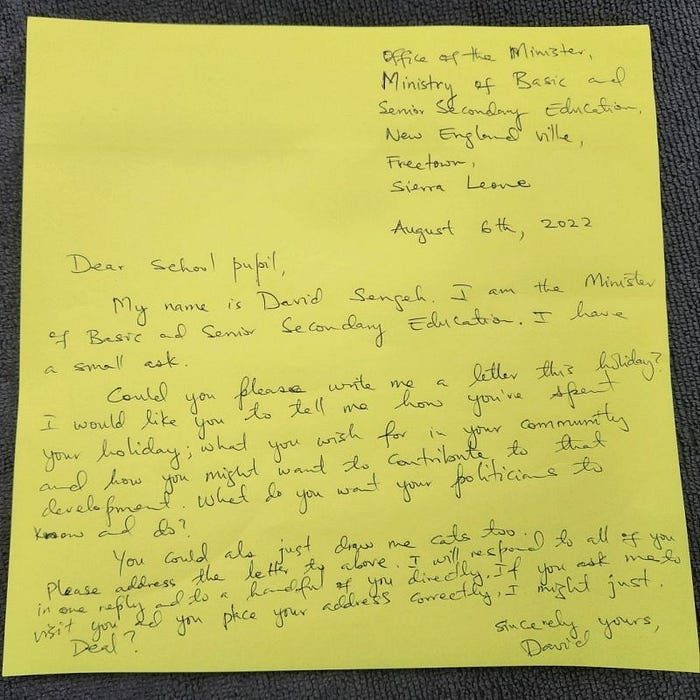 Office of the Minister,
Ministry of Basic and
Senior Secondary Education,
New England ville,
Freetown,
Sierra Leone
August 6th, 2022
Dear school pupil,
My name is David Sengeh. I am the Minister
of Basic ad Senior Secondary Education. I have
a small ask.
Could you please write me a letter this holiday?
I would like you to tell me how you've spent
your holiday; what you wish for in your community
and how you might want to contribute to that
development. What do you want your politicians to
know and do?
You could als just draw me cats too.
Please address the letter to above. I will respond to all of you
in one reply ad to a handful of you directly. If you ask me to
visit you ad you place your address correctly, I might just.
Deal?
Sincerely yours,
David